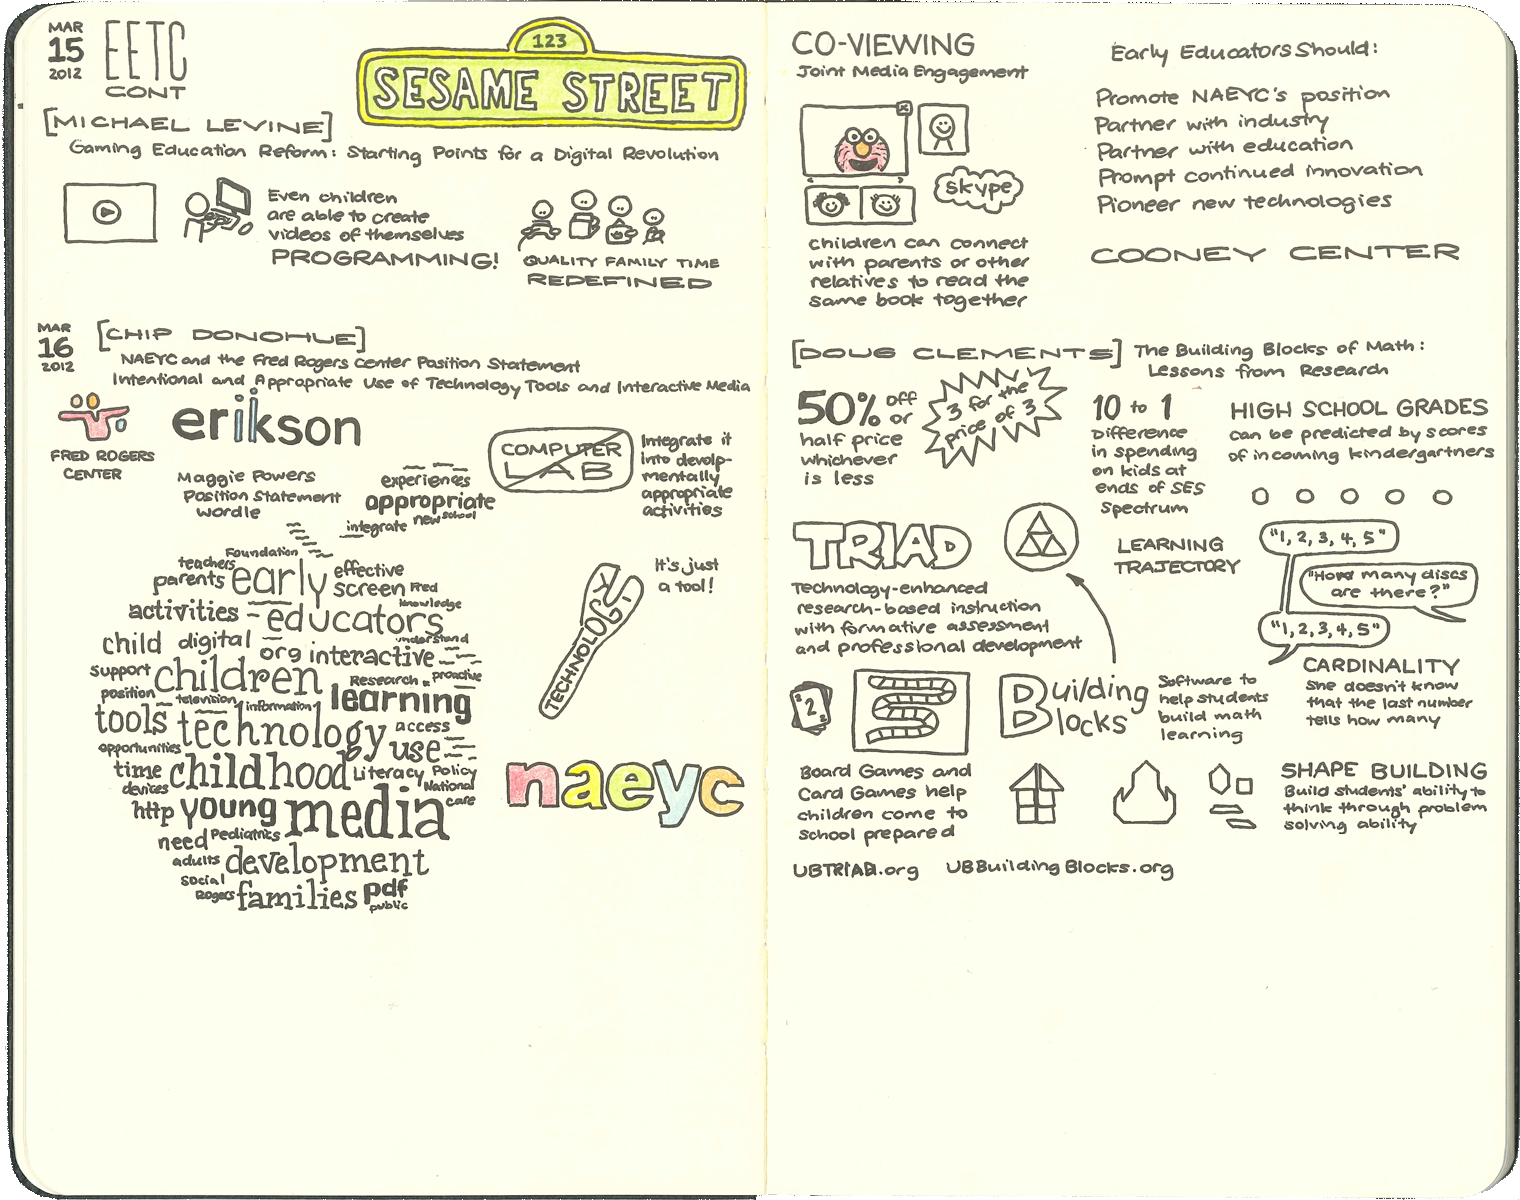 MAR
15
2012
EETC
CONT
123
SESAME STREET
[MICHAEL LEVINE]
Gaming Education Reform: Starting Points for a Digital Revolution
Even children
are able to create
videos of themselves
PROGRAMMING!
QUALITY FAMILY TIME
REDEFINED
MAR
16
2012
[CHIP DONOHUE]
NAEYC and the Fred Rogers Center Position Statement
Intentional and Appropriate Use of Technology Tools and Interactive Media
FRED ROGERS
CENTER
erikson
Maggie Powers
Position Statement
Wordle
COMPUTER
LAB
Integrate it
into devolp-
mentally
appropriate
activities
experiences
appropriate
integrate new school
Foundation
teachers
parents early effective
screen Fred
activities educators knowledge
child digital org interactive understand
support children Research proactive
position television information learning
tools technology access
opportunities use
time childhood Literacy Policy
devices National
http young media care
need Pediatrics
adults development
social
Rogers families pdf
public
TECHNOLOGY
It's just
a tool!
naeyc
CO-VIEWING
Joint Media Engagement
skype
children can connect
with parents or other
relatives to read the
same book together
Early Educators Should:
Promote NAEYC's position
Partner with industry
Partner with education
Prompt continued innovation
Pioneer new technologies
COONEY CENTER
[DOUG CLEMENTS]
The Building Blocks of Math:
Lessons from Research
50% off
or
half price
whichever
is less
3 for the
price of 3
10 to 1
Difference
in spending
on kids at
ends of SES
Spectrum
HIGH SCHOOL GRADES
can be predicted by scores
of incoming kindergartners
TRIAD
Technology-enhanced
research-based instruction
with formative assessment
and professional development
LEARNING
TRAJECTORY
"1, 2, 3, 4, 5"
"How many discs
are there?"
"1, 2, 3, 4, 5"
CARDINALITY
She doesn't know
that the last number
tells how many
2
Building
Blocks
Software to
help students
build math
learning
Board Games and
Card Games help
children come to
school prepared
SHAPE BUILDING
Build students' ability to
think through problem
solving ability
UBTRIAD.org
UBBuildingBlocks.org